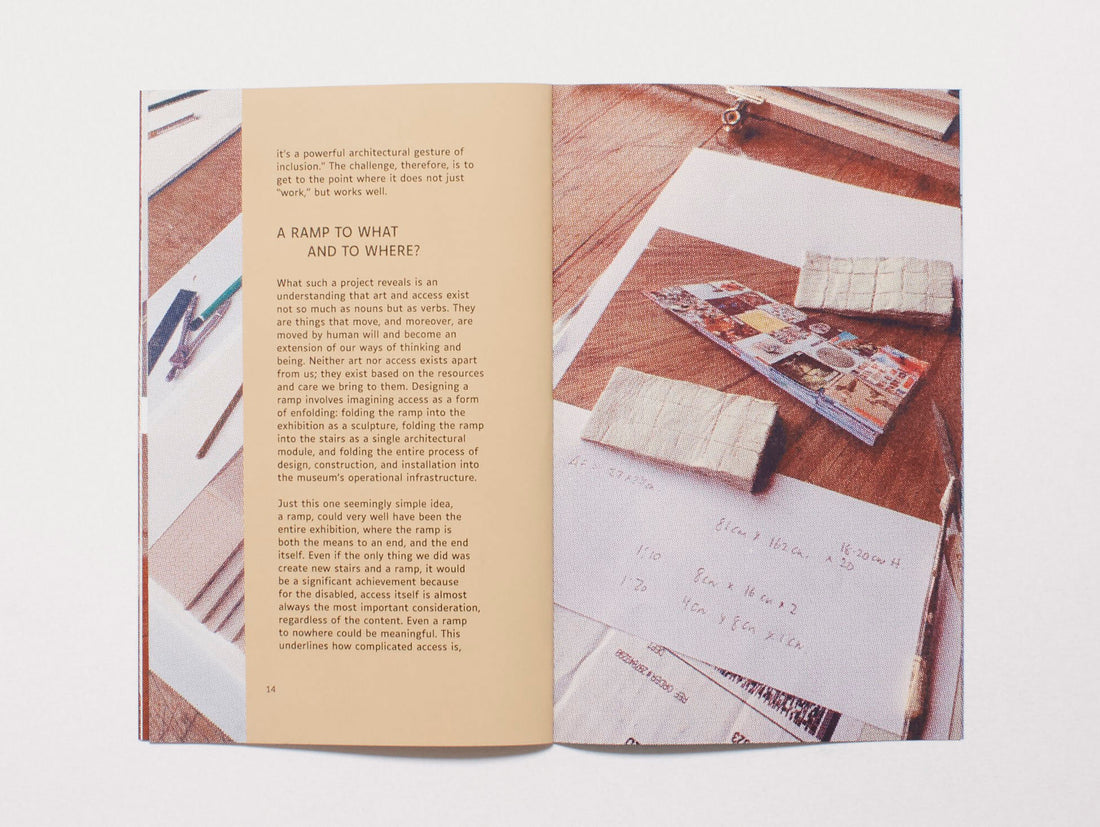 it's a powerful architectural gesture of
inclusion." The challenge, therefore, is to
get to the point where it does not just
"work," but works well.
A RAMP TO WHAT
AND TO WHERE?
What such a project reveals is an
understanding that art and access exist
not so much as nouns but as verbs. They
are things that move, and moreover, are
moved by human will and become an
extension of our ways of thinking and
being. Neither art nor access exists apart
from us; they exist based on the resources
and care we bring to them. Designing a
ramp involves imagining access as a form
of enfolding: folding the ramp into the
exhibition as a sculpture, folding the ramp
into the stairs as a single architectural
module, and folding the entire process of
design, construction, and installation into
the museum's operational infrastructure.
Just this one seemingly simple idea,
a ramp, could very well have been the
entire exhibition, where the ramp is
both the means to an end, and the end
itself. Even if the only thing we did was
create new stairs and a ramp, it would
be a significant achievement because
for the disabled, access itself is almost
always the most important consideration,
regardless of the content. Even a ramp
to nowhere could be meaningful. This
underlines how complicated access is,
14
81cm x 162cm. x 20
1:10 8cm x 16cm x 2
1:20 4cm x 8cm x 1cm
DEPT